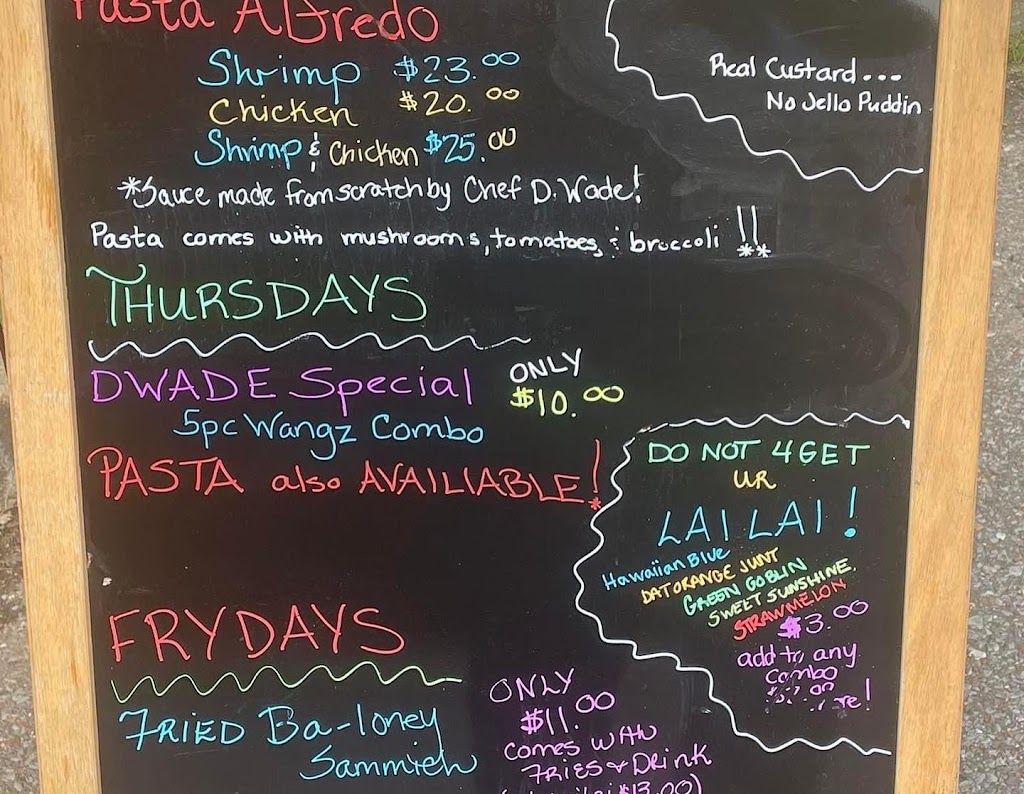 Pasta Alfredo
Shrimp $23.00
Chicken $20.00
Shrimp & Chicken $25.00
*Sauce made from scratch by Chef D. Wade!
Pasta comes with mushrooms, tomatoes, & broccoli !!
**
Real Custard...
No Jello Puddin
THURSDAYS
DWADE Special ONLY
$10.00
5pc Wangz Combo
PASTA also AVAILIABLE!
*
DO NOT 4GET
UR
LAI LAI!
Hawaiian Blue
DATORANGE JUNT
GREEN GOBLIN
SWEET SUNSHINE
STRAWMELON
$3.00
add to any
combo
FRYDAYS
FRIED Ba-loney
Sammich
ONLY
$11.00
comes with
FRIES & DRINK
$13.00)